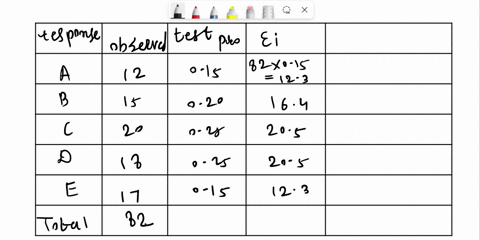 response observed test pro Ei
A 12 0.15 82×0.15
= 12.3
B 15 0.20 16.4
C 20 0.25 20.5
D 18 0.25 20.5
E 17 0.15 12.3
Total 82